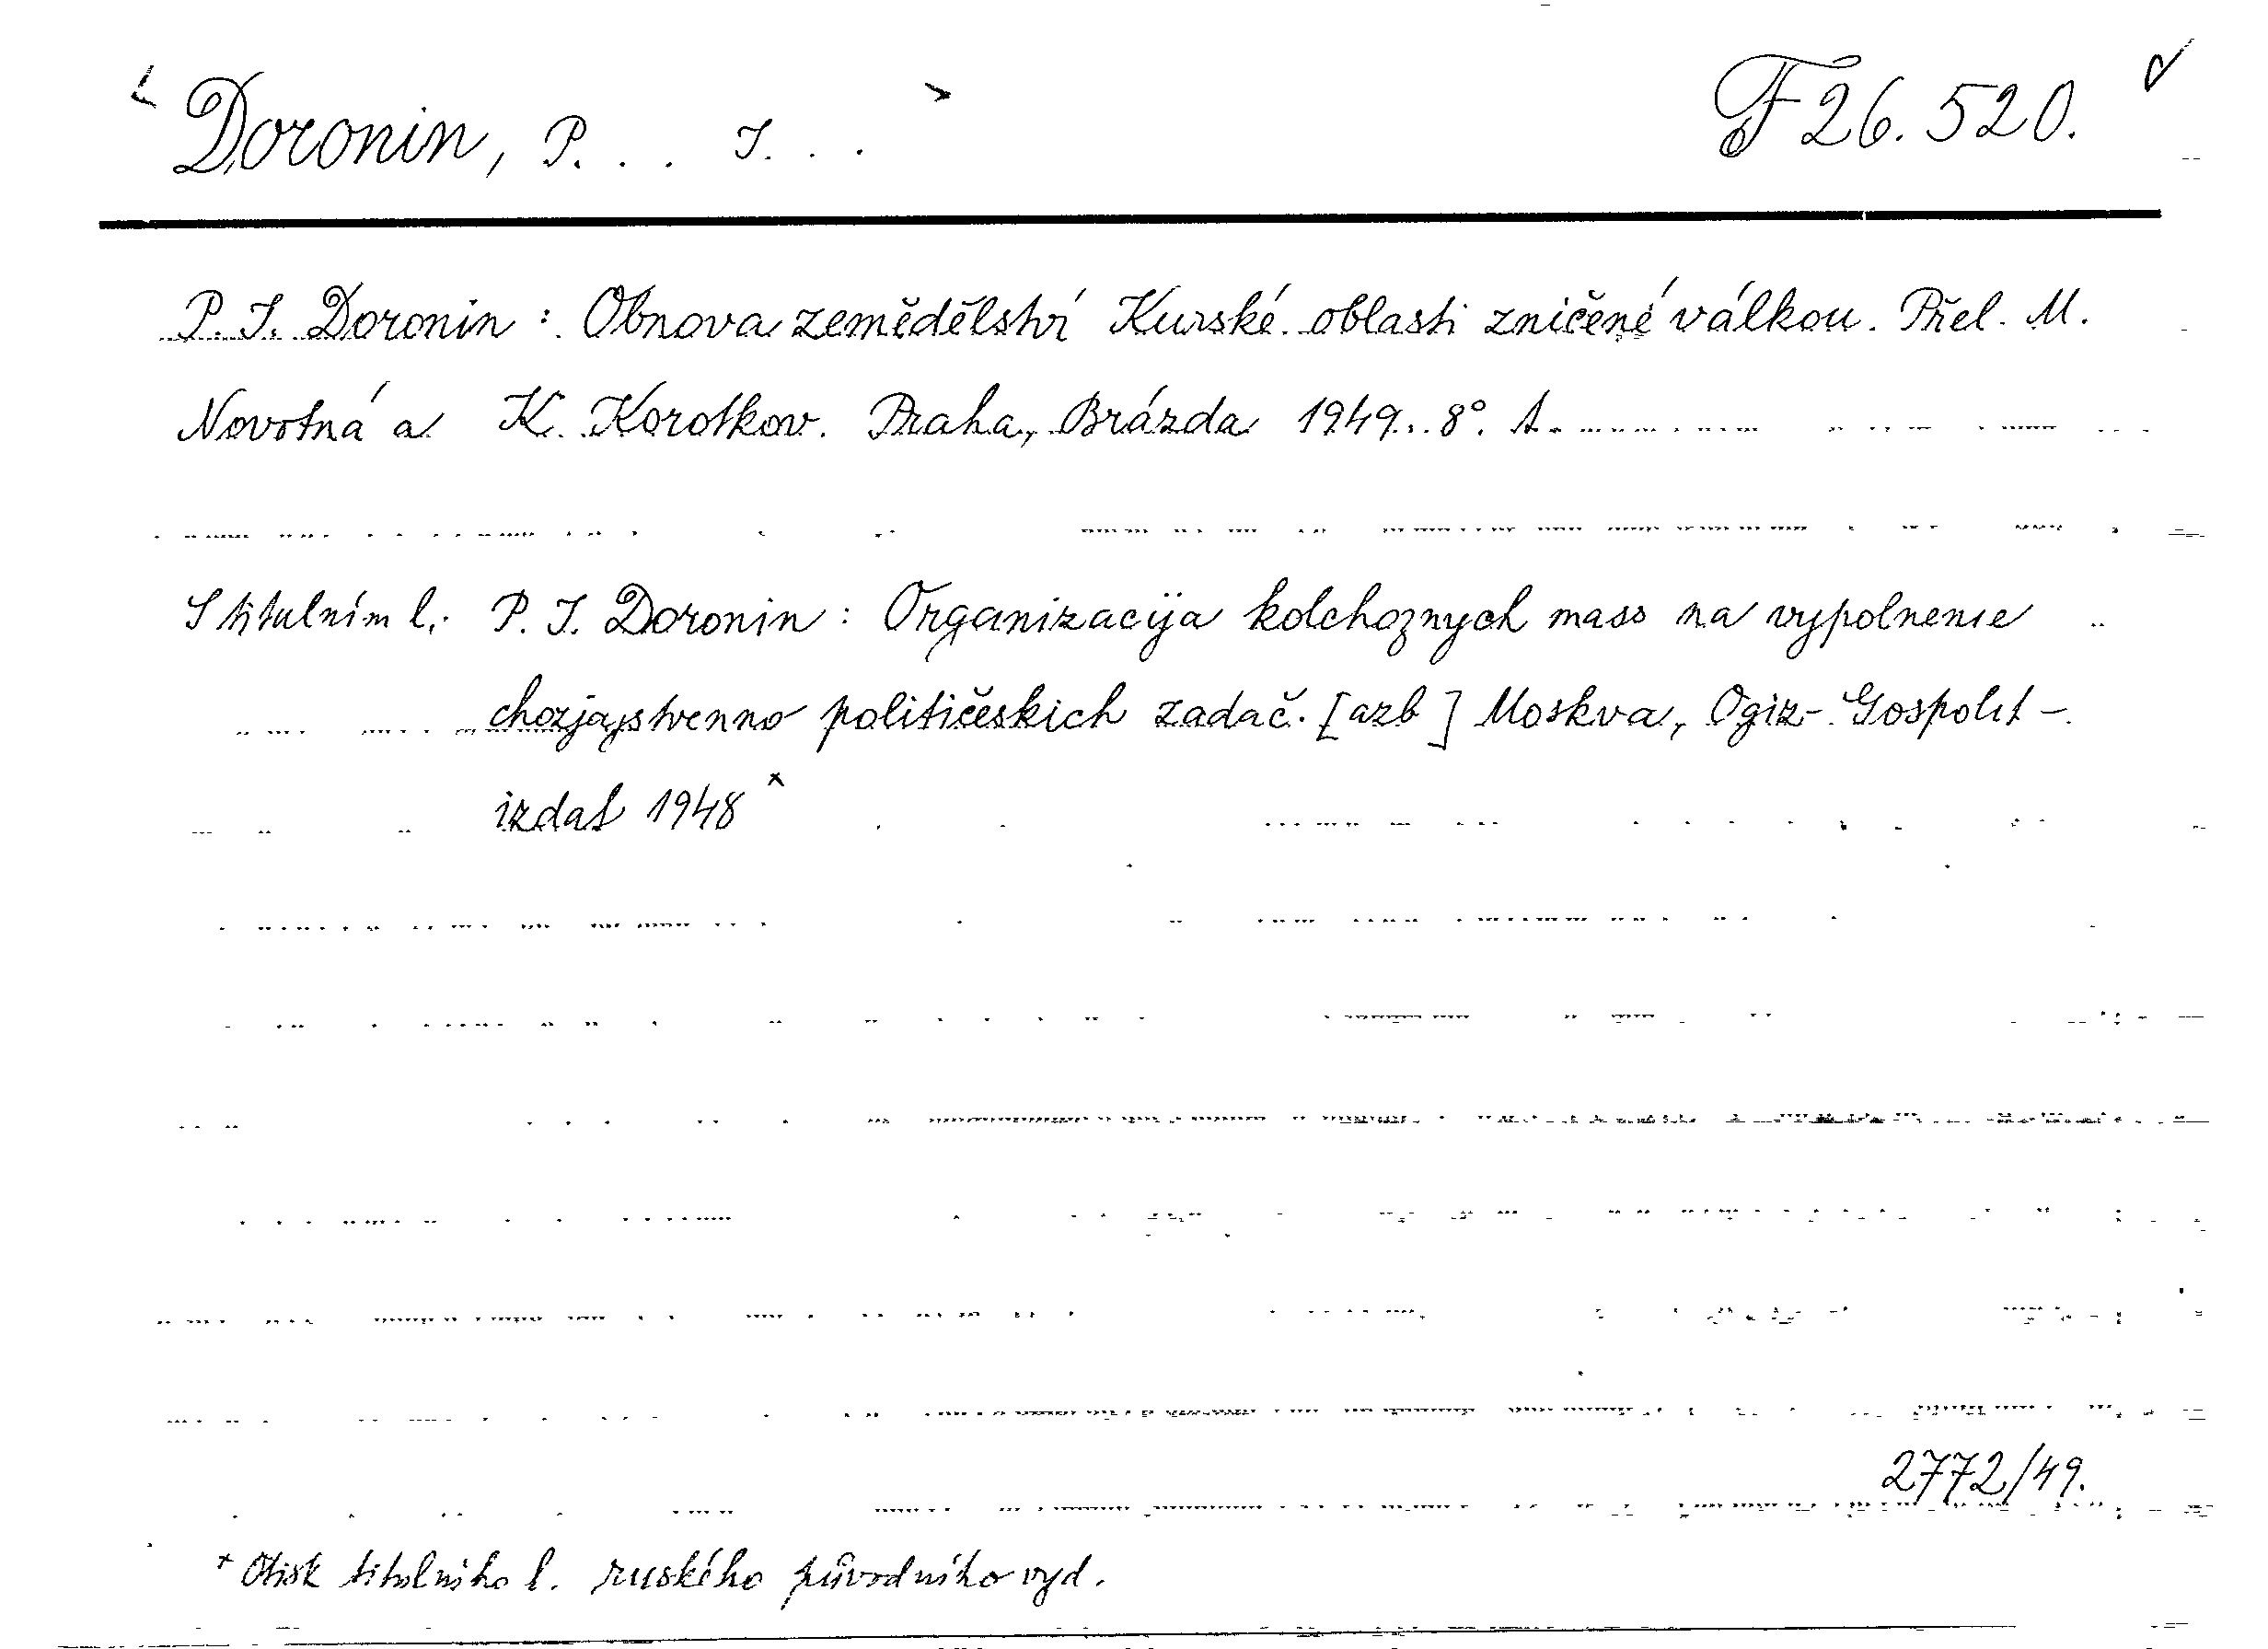 < Doronin, P... I... > F 26.520.
P. I. Doronin: Obnova zemědělství Kurské oblasti zničené válkou. Přel. M.
Novotná a K. Korotkov. Praha, Brázda 1949. 8°.
S titulním l.: P. I. Doronin: Organizacija kolchoznych mass na vypolnenie
chozjajstvenno političeskich zadač. [azb] Moskva, Ogiz-Gospolit-
izdat 1948 x
2772/49.
+ Otisk titulního l. ruského původního vyd.